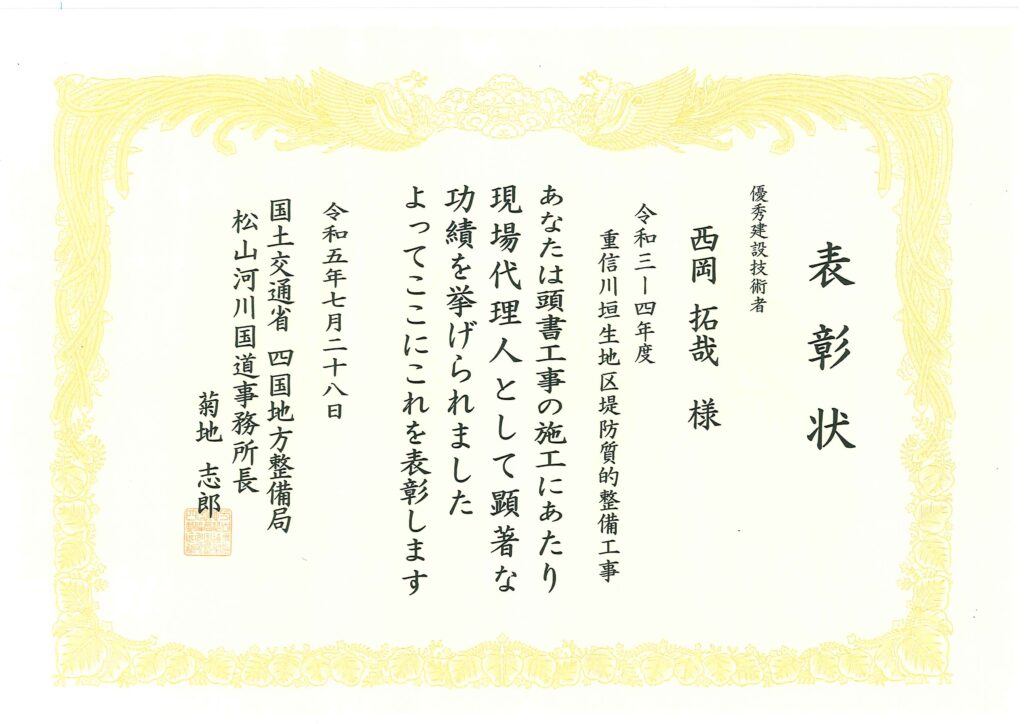 表彰状
優秀建設技術者
西岡 拓哉 様
令和三ー四年度
重信川垣生地区堤防質的整備工事
あなたは頭書工事の施工にあたり
現場代理人として顕著な
功績を挙げられました
よってここにこれを表彰します
令和五年七月二十八日
国土交通省 四国地方整備局
松山河川国道事務所長
菊地 志郎